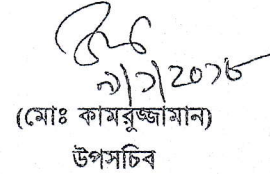 ৯/১/২০১৮
(মোঃ কামরুজ্জামান)
উপসচিব